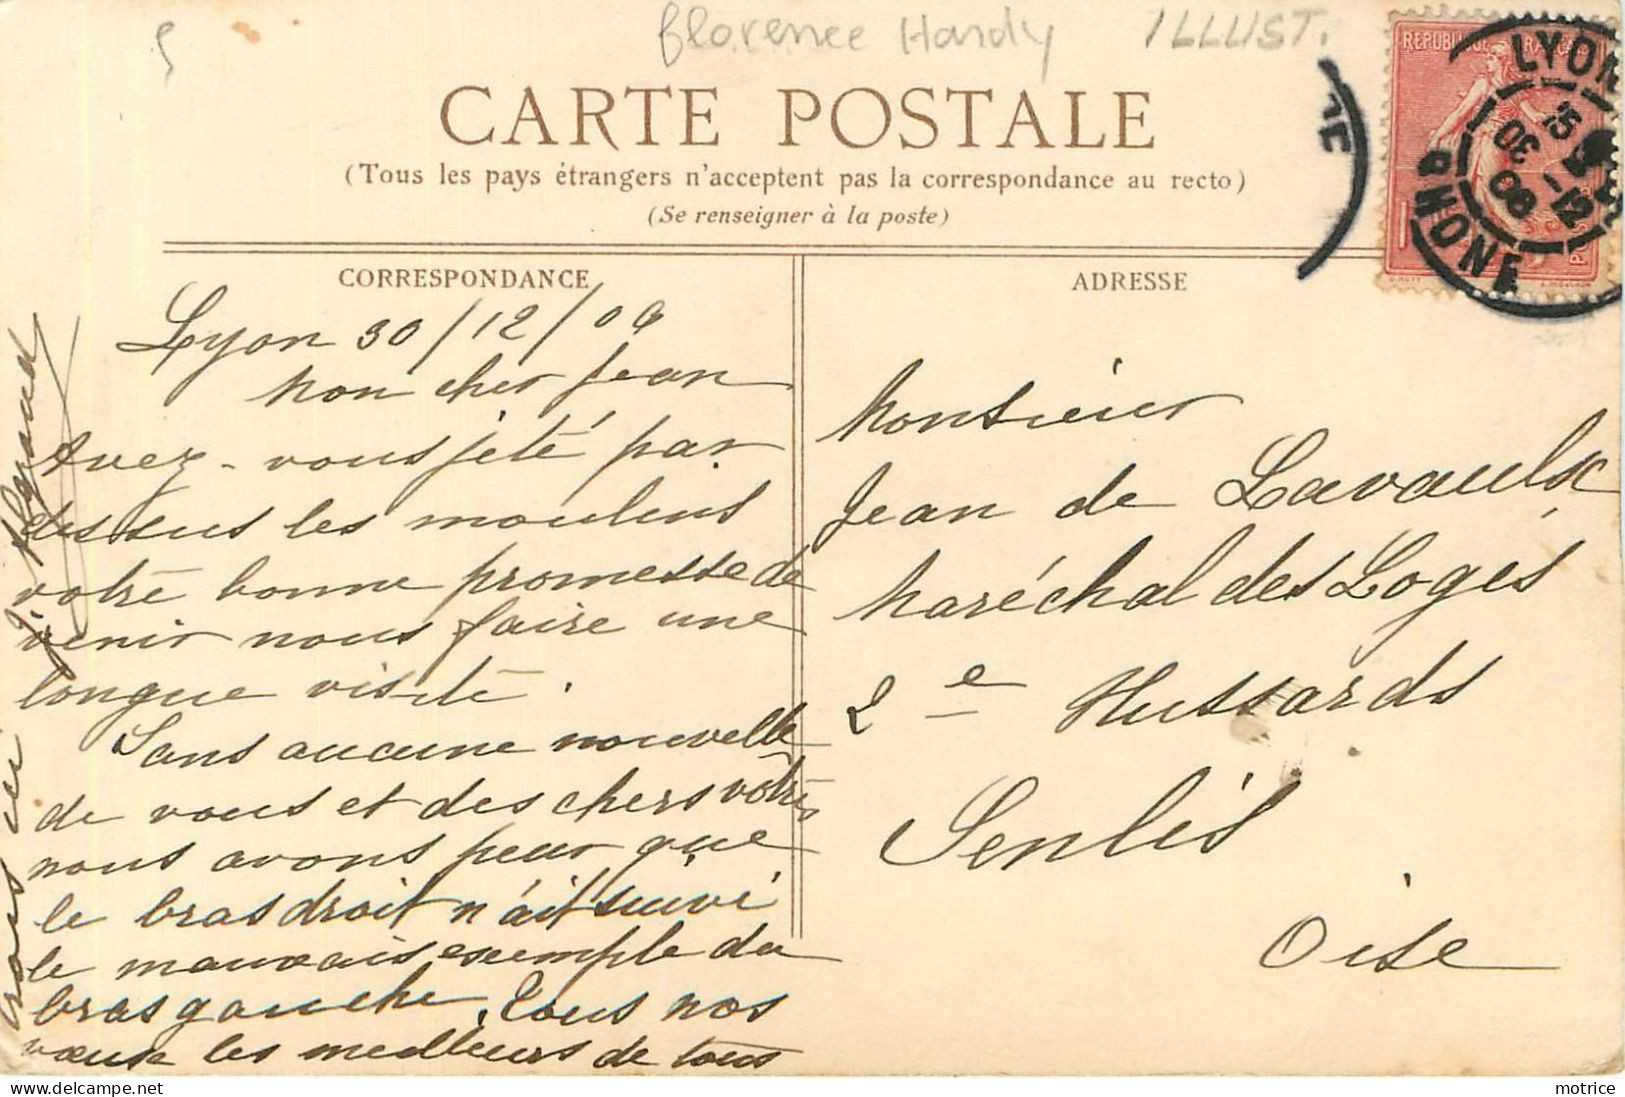 florence Hardy ILLUST.
CARTE POSTALE
(Tous les pays étrangers n'acceptent pas la correspondance au recto)
(Se renseigner à la poste)
CORRESPONDANCE
Lyon 30/12/06
Mon cher Jean
Avez-vous jeté par
dessus les moulins
votre bonne promesse de
venir nous faire une
longue visite.
Sans aucune nouvelle
de vous et des chers vôtres
nous avons peur que
le bras droit n'ait suivi
le mauvais exemple du
bras gauche. Tous nos
vœux les meilleurs de tous
ADRESSE
Monsieur
Jean de Lavaulx
Maréchal des Logis
2e Hussards
Senlis
Oise
REPUBLIQUE FRANÇAISE
LYON
RHONE
30 DE
5 -12
06
motrice